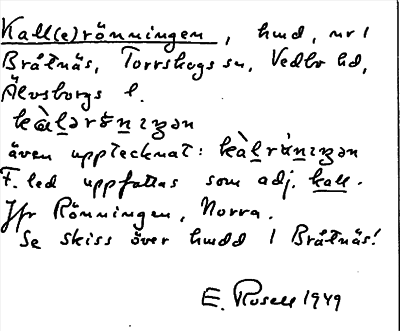 Kall(e)rönningen, hmd, nr 1
Bråtnäs, Torrskogs sn, Vedbo hd,
Älvsborgs l.
även upptecknat:
F. led uppfattas som adj. kall.
Jfr Rönningen, Norra.
Se skiss över hmdd i Bråtnäs!
E. Rosell 1949